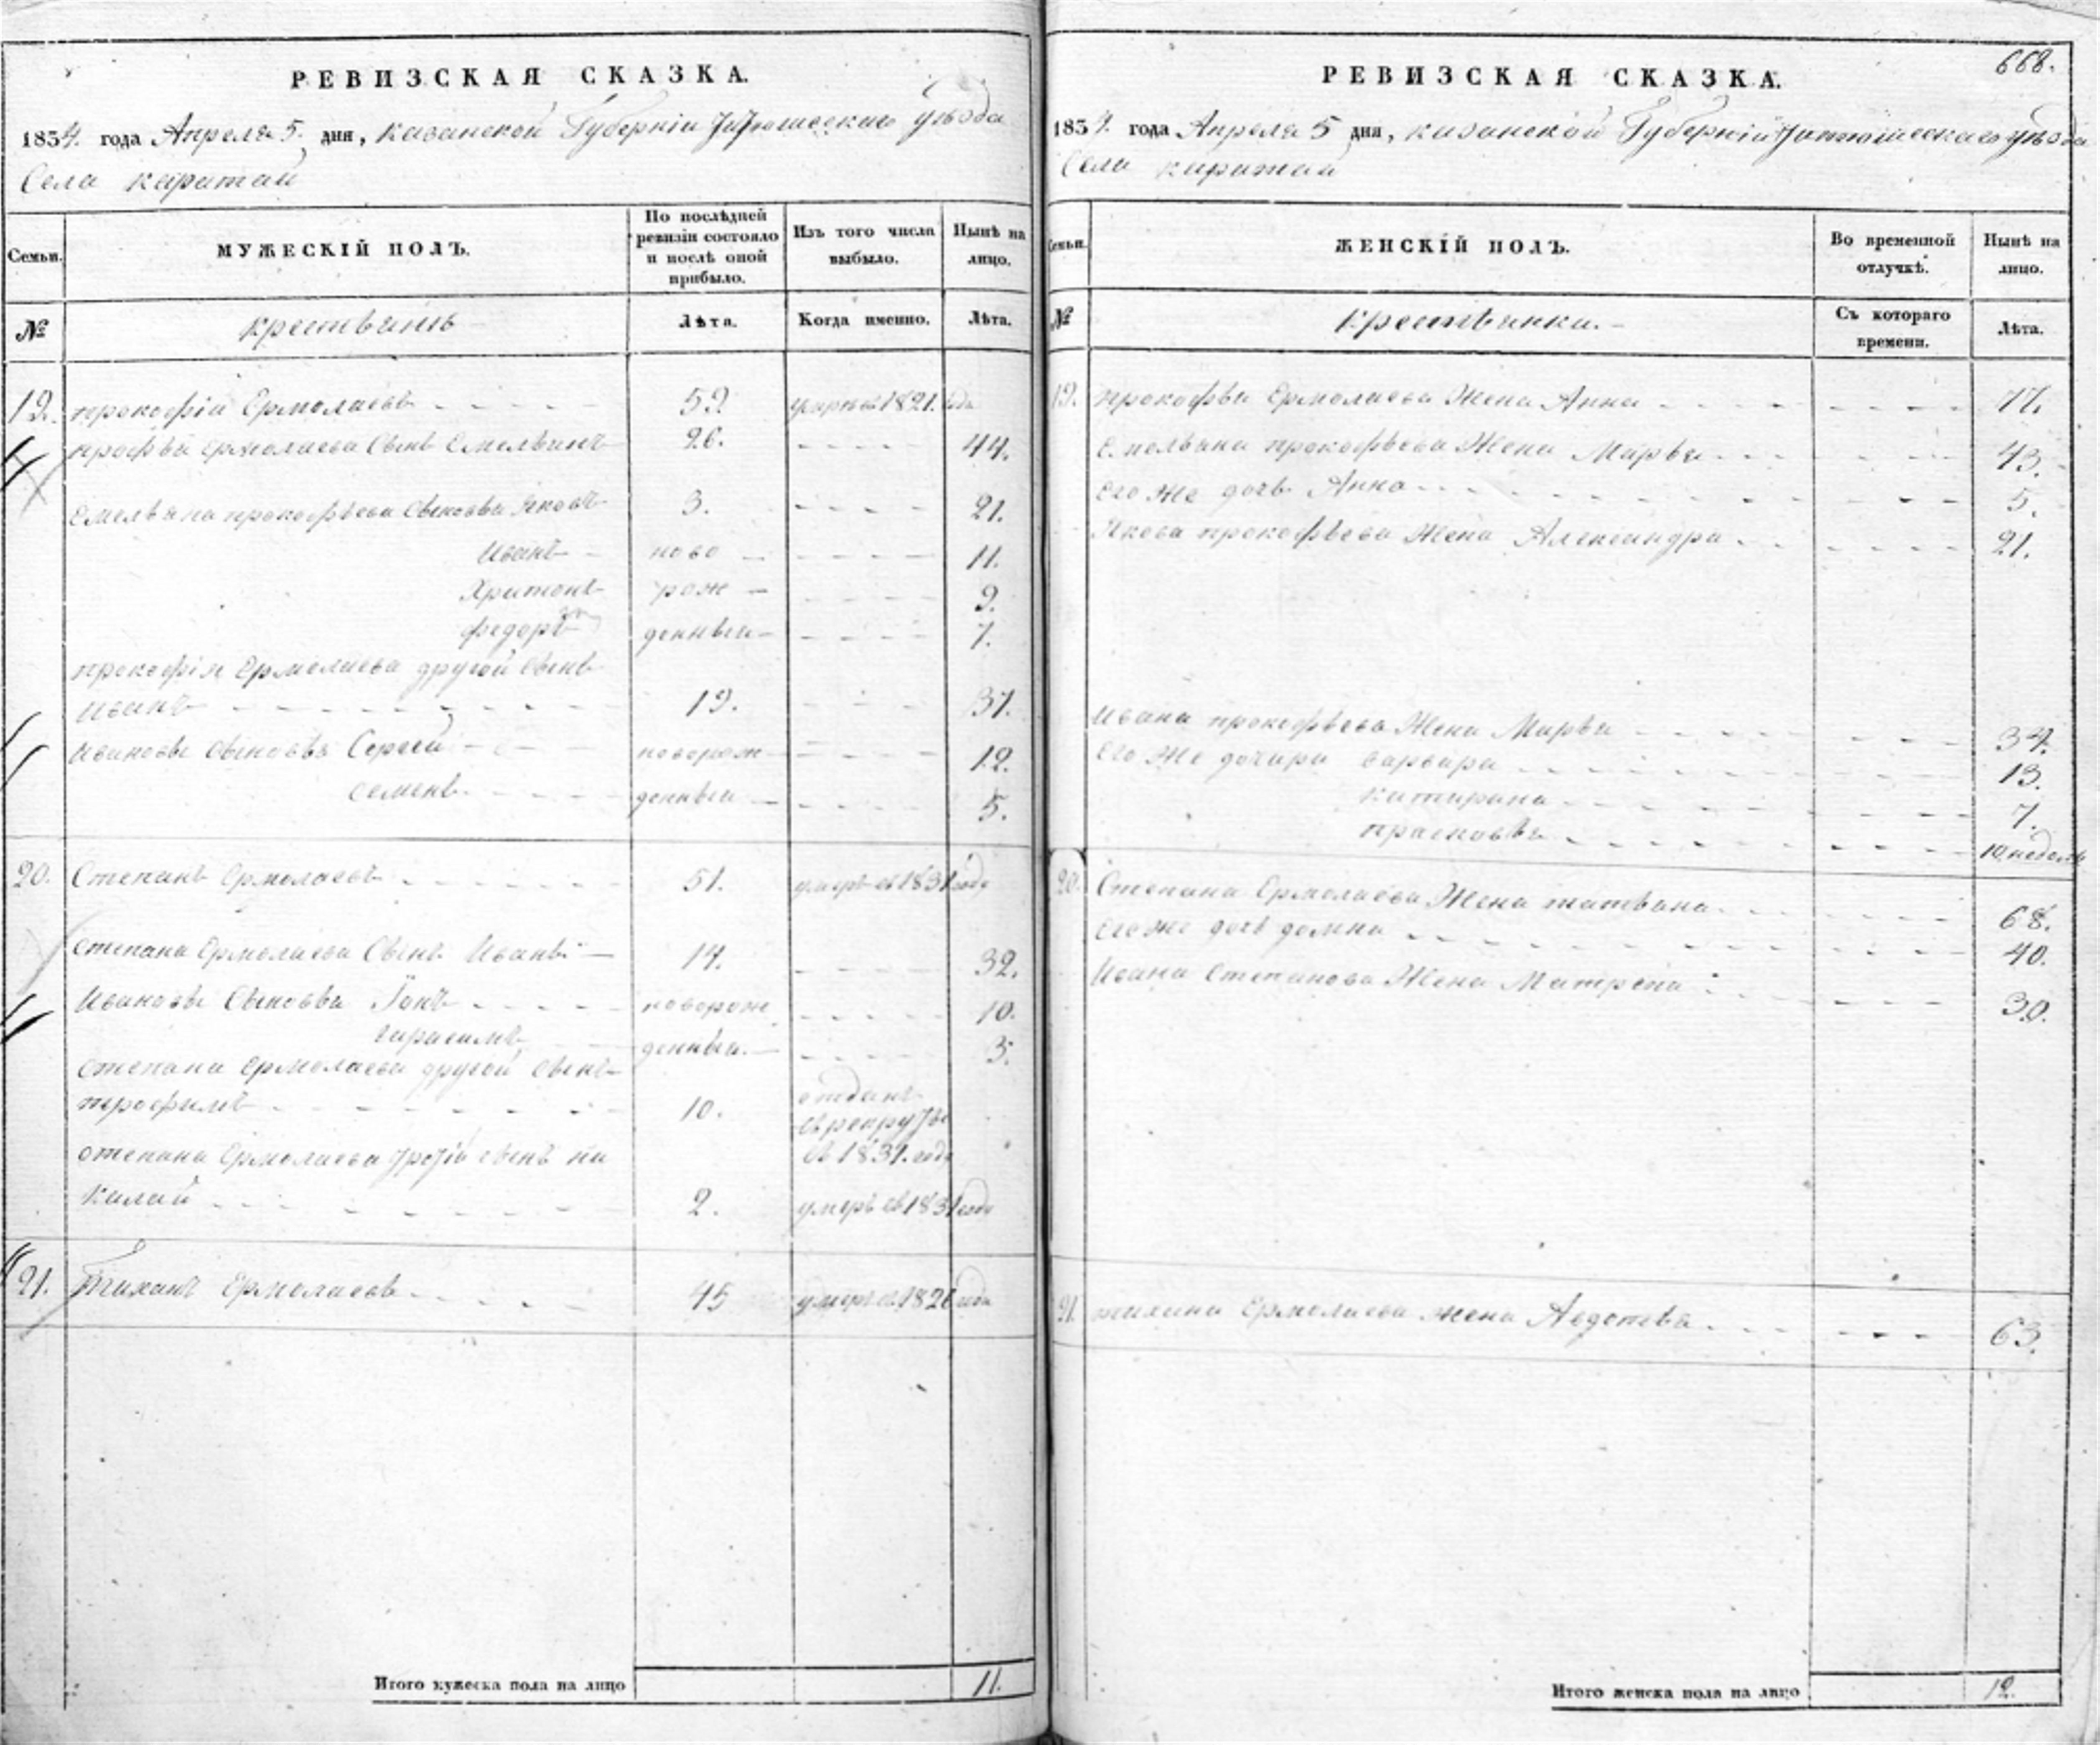 РЕВИЗСКАЯ СКАЗКА.
1834. года Апреля 5. дня, казанской Губернiи Тетюшескаго уѣзда
Села каратаи
Семьи.
МУЖЕСКІЙ ПОЛЪ.
По послѣдней ревизіи состояло и послѣ оной прибыло.
Изъ того числа выбыло.
Нынѣ на лицо.
№
крестьянъ
Лѣта.
Когда именно.
Лѣта.
19. прокофiи Ермолаевъ 59. умре въ 1821. годе
Ермолаева Сынъ Емельянъ 26. 44.
Емельяна прокофьева Сыновья Яковъ 3. 21.
Иванъ ново 11.
Харитонъ рож 9.
федоръ денныи 7.
прокофiя Ермолаева другой Сынъ
Иванъ 19. 37.
Ивановы Сыновья Сергей новорож 12.
семенъ денныи 5.
20. Степанъ Ермолаевъ 51. умеръ въ 1831 годе
степана Ермолаева Сынъ Иванъ 14. 32.
Ивановы Сыновья новорож 10.
гарасимъ денныи. 3.
степана Ермолаева другой сынъ
трофимъ 10. отданъ
въ рекруты
въ 1831. годе
степана Ермолаева третiй сынъ ни
калай 2. умеръ въ 1831 годе
21. Тиханъ Ермолаевъ 45 умеръ въ 1826 годе
Итого мужеска пола на лицо 11.
668.
РЕВИЗСКАЯ СКАЗКА.
1834. года Апреля 5 дня, казанской Губернiй Тетюшескаго уѣзда
Села каратаи
Семьи.
ЖЕНСКІЙ ПОЛЪ.
Во временной отлучкѣ.
Нынѣ на лицо.
№
Крестьянки.
Съ котораго времени.
Лѣта.
19. прокофьи Ермолаева Жена Анна 77.
Емельяна прокофьева Жена Марья 43.
Его же дочь Анна 5.
Якова прокофьева Жена Александра 21.
Ивана прокофьева Жена Марья 34.
Его же дочири варвара 13.
катирина 7.
прасковья 10 недель
20. Степана Ермолаева Жена татьяна 68.
Его же дочь домна 40.
Ивана Степанова Жена Матрена 30.
21. тихана Ермолаева жена Авдотья 63.
Итого женска пола на лицо 12.